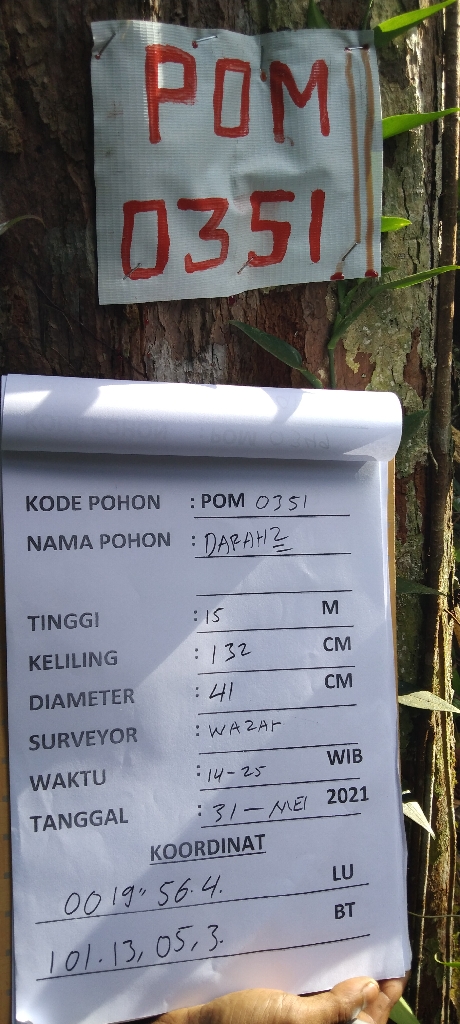 POM
0351
KODE POHON : POM 0351
NAMA POHON : DARAH2
TINGGI : 15 M
KELILING : 132 CM
DIAMETER : 41 CM
SURVEYOR : WAZAR
WAKTU : 14-25 WIB
TANGGAL : 31-MEI 2021
KOORDINAT
00 19" 56.4. LU
101.13, 05, 3. BT